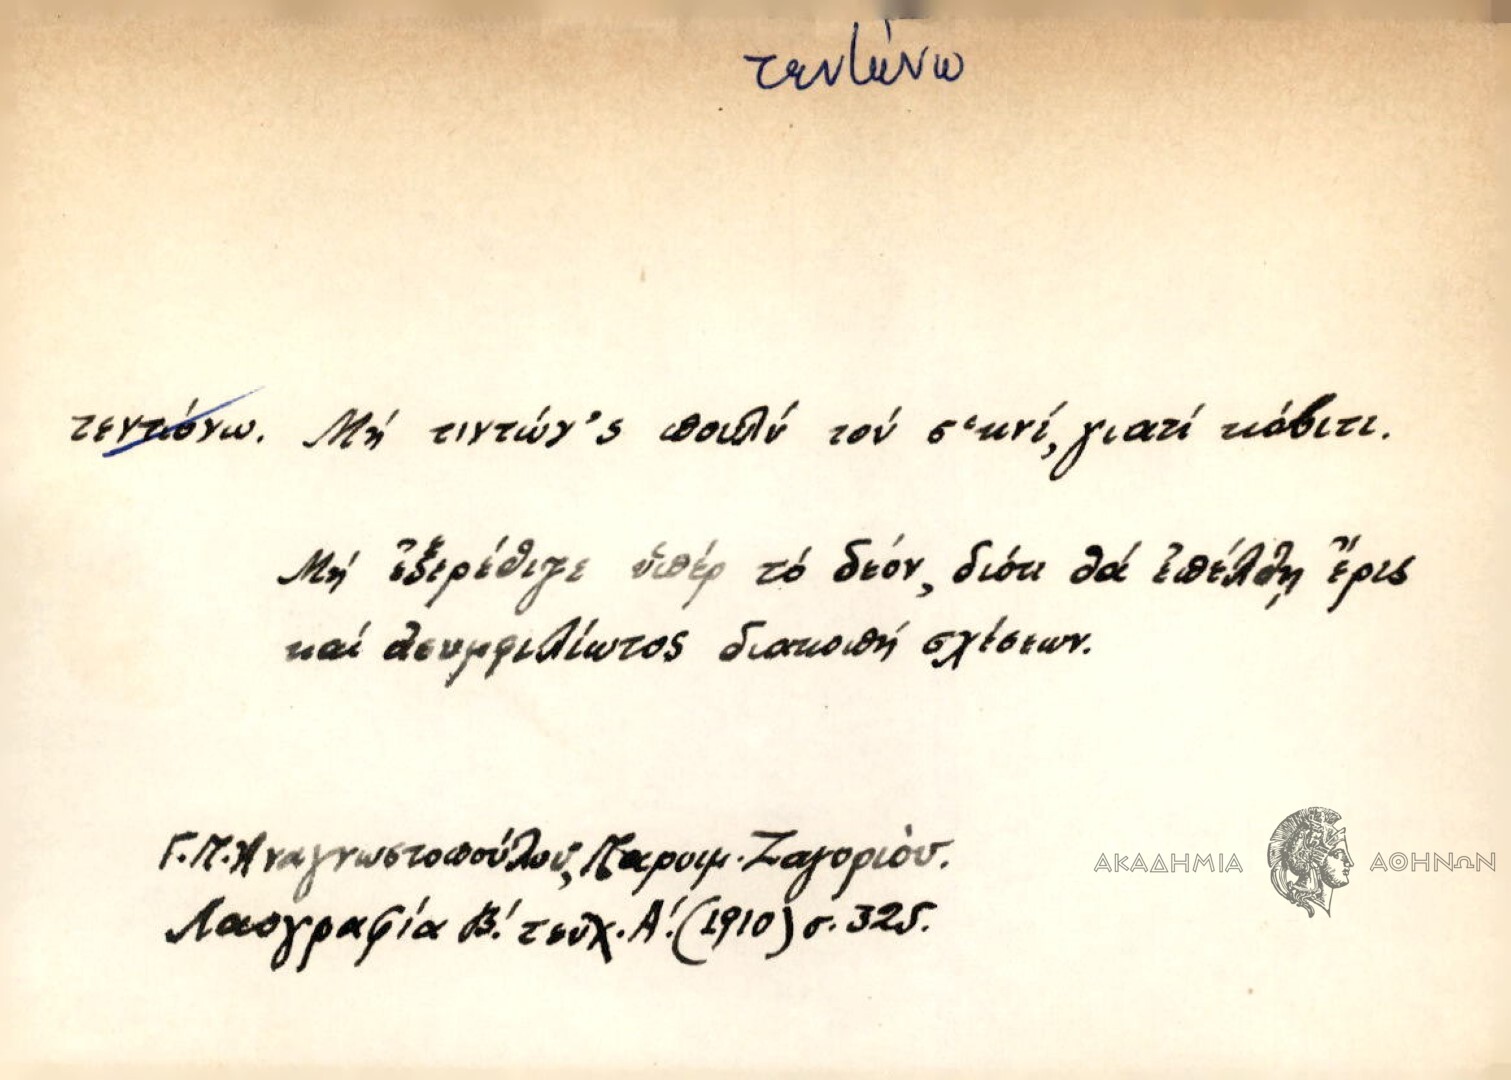 τεντώνω
τεντώνω. Μή τιντών'ς πουλύ τού σ'κνί, γιατί κόβιτι.
Μή ἐξερέθιζε ὑπέρ τό δεόν, διότι θά ἐπέλθῃ ἔρις
καί ἀσυμφιλίωτος διακοπή σχέσεων.
Γ.Π. Ἀναγνωστοπούλου, Παροιμ. Ζαγορίου.
Λαογραφία Β΄. τεῦχ. Α΄. (1910) σ. 325.
ΑΚΑΔΗΜΙΑ ΑΘΗΝΩΝ